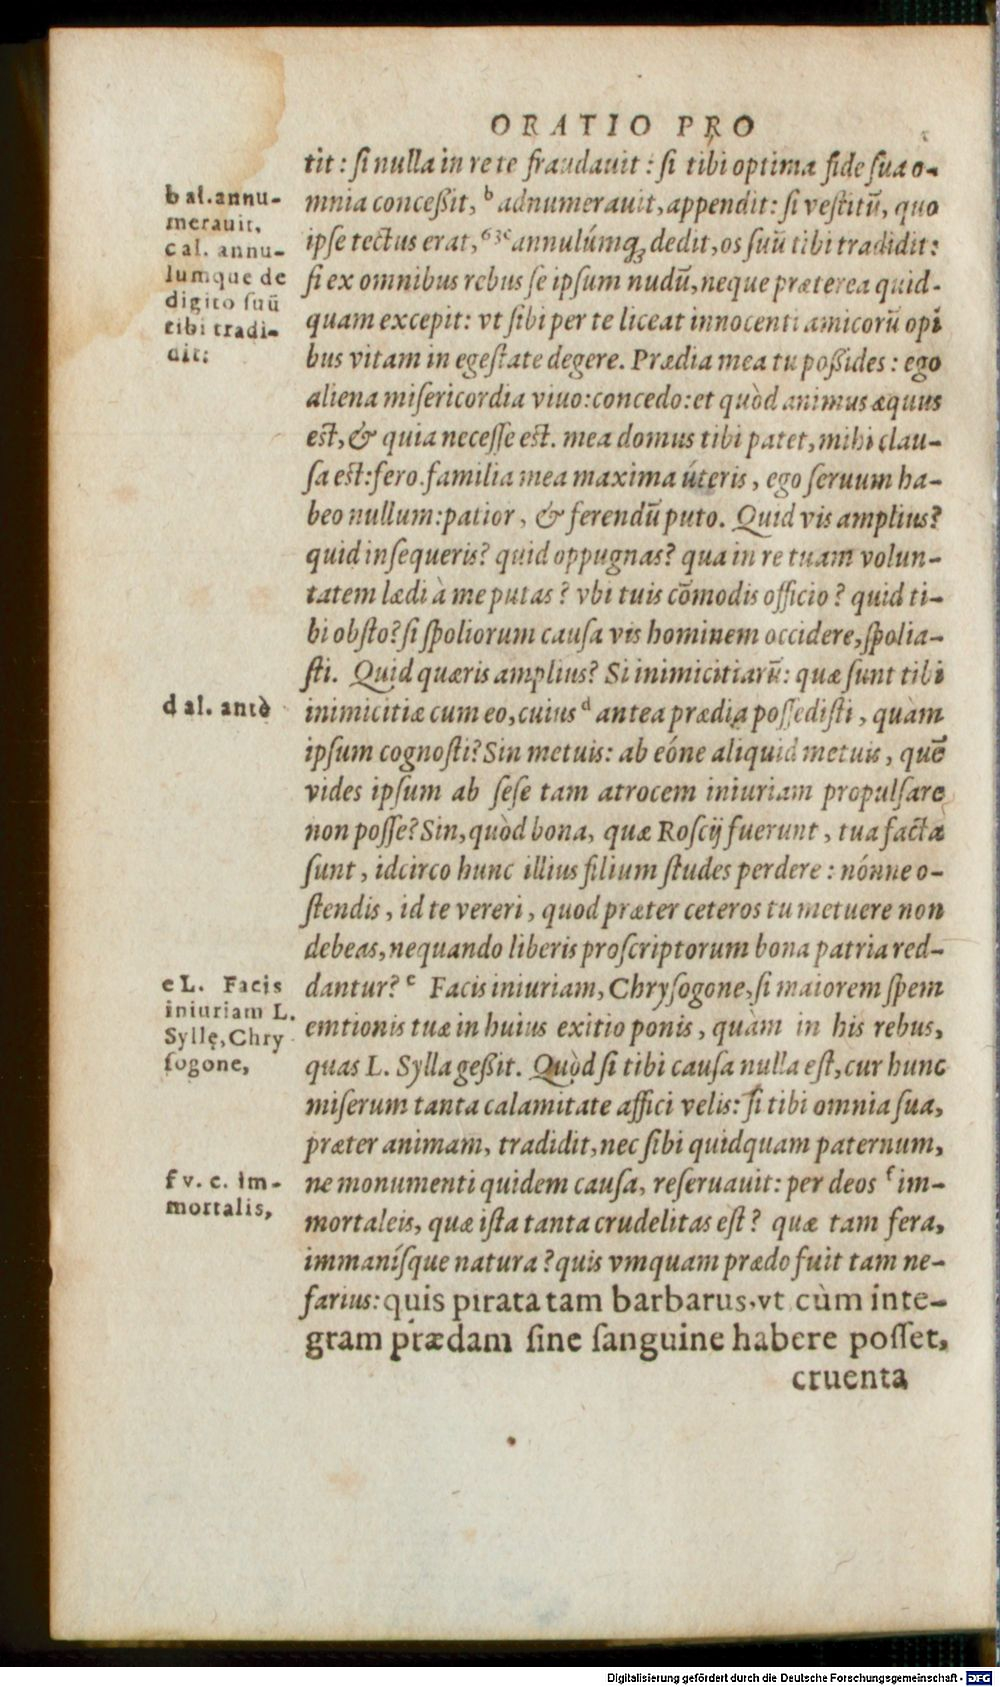 ORATIO PRO
tit: ſi nulla in re te fraudauit: ſi tibi optima fide ſua o-
mnia conceßit, ᵇ adnumerauit, appendit: ſi veſtitū, quo
ipſe tectus erat, ᶜ annulúmq; dedit, os ſuū tibi tradidit:
ſi ex omnibus rebus ſe ipſum nudū, neque præterea quid-
quam excepit: vt ſibi per te liceat innocenti amicorū opi
bus vitam in egeſtate degere. Prædia mea tu poßides: ego
aliena miſericordia viuo: concedo: et quòd animus æquus
eſt, & quia neceſſe eſt. mea domus tibi patet, mihi clau-
ſa eſt: fero. familia mea maxima úteris, ego ſeruum ha-
beo nullum: patior, & ferendū puto. Quid vis amplius?
quid inſequeris? quid oppugnas? qua in re tuam volun-
tatem lædi à me putas? vbi tuis cōmodis officio? quid ti-
bi obſto? ſi ſpoliorum cauſa vis hominem occidere, ſpolia-
ſti. Quid quæris amplius? Si inimicitiarū: quæ ſunt tibi
inimicitiæ cum eo, cuius ᵈ antea prædia poſſediſti, quàm
ipſum cognoſti? Sin metuis: ab eóne aliquid metuis, quē
vides ipſum ab ſeſe tam atrocem iniuriam propulſare
non poſſe? Sin, quòd bona, quæ Roſcij fuerunt, tua facta
ſunt, idcirco hunc illius filium ſtudes perdere: nónne o-
ſtendis, id te vereri, quod præter ceteros tu metuere non
debeas, nequando liberis proſcriptorum bona patria red-
dantur? ᵉ Facis iniuriam, Chryſogone, ſi maiorem ſpem
emtionis tuæ in huius exitio ponis, quàm in his rebus,
quas L. Sylla geßit. Quòd ſi tibi cauſa nulla eſt, cur hunc
miſerum tanta calamitate affici velis: ſi tibi omnia ſua,
præter animam, tradidit, nec ſibi quidquam paternum,
ne monumenti quidem cauſa, reſeruauit: per deos ᶠ im-
mortaleis, quæ iſta tanta crudelitas eſt? quæ tam fera,
immaníſque natura? quis vmquam prædo fuit tam ne-
farius: quis pirata tam barbarus, vt cùm inte-
gram prædam ſine ſanguine habere poſſet,
cruenta
b al. annu-
merauit,
c al. annu-
lumque de
digito ſuū
tibi tradi-
dit:
d al. antè
e L. Facis
iniuriam L.
Syllę, Chry
ſogone,
f v. c. im-
mortalis,
Digitalisierung gefördert durch die Deutsche Forschungsgemeinschaft - DFG